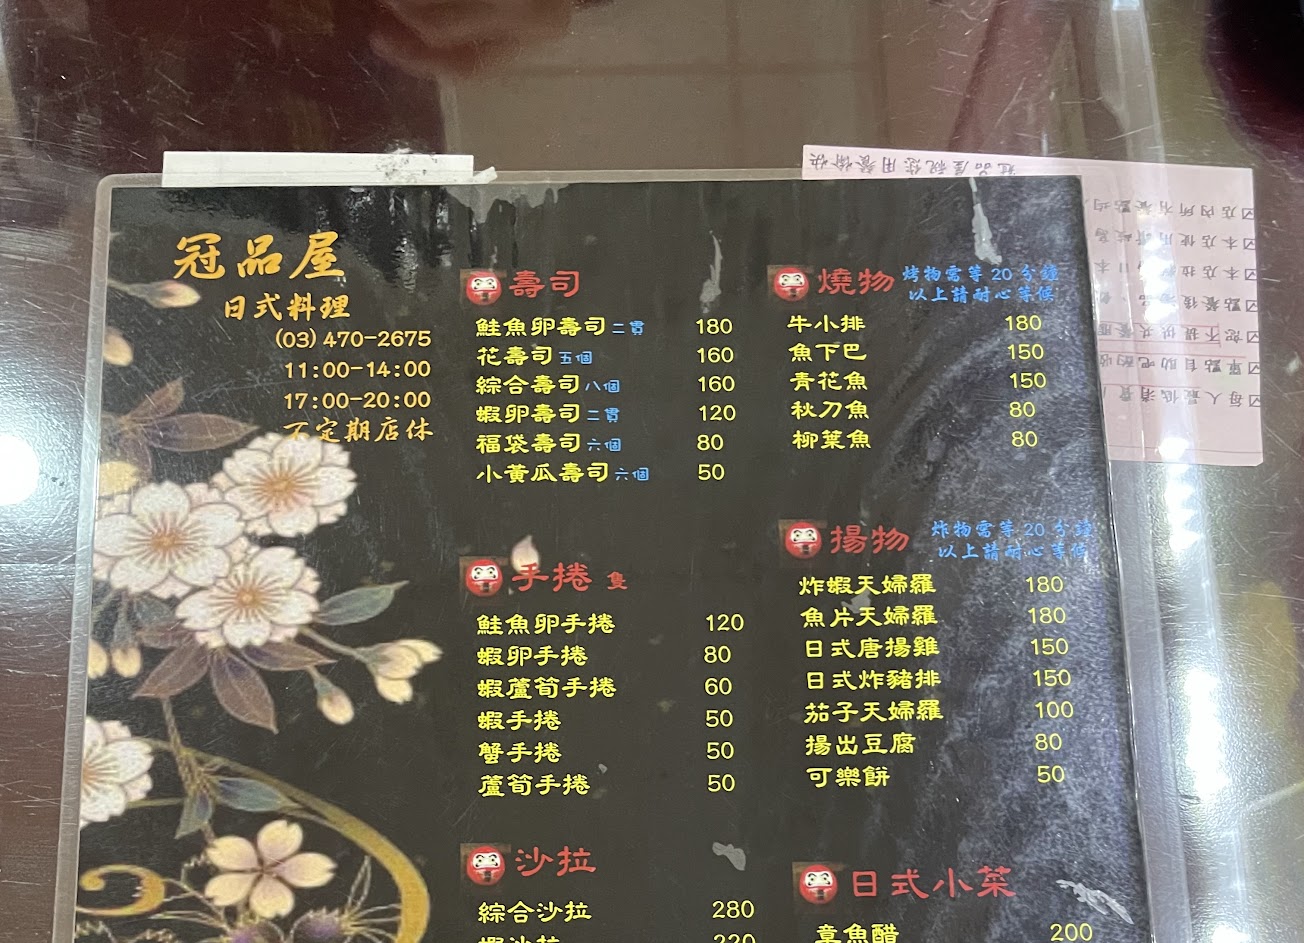 冠品屋
日式料理
(03)470-2675
11:00-14:00
17:00-20:00
不定期店休
壽司
鮭魚卵壽司 二貫 180
花壽司 五個 160
綜合壽司 八個 160
蝦卵壽司 二貫 120
福袋壽司 六個 80
小黃瓜壽司 六個 50
手捲 隻
鮭魚卵手捲 120
蝦卵手捲 80
蝦蘆筍手捲 60
蝦手捲 50
蟹手捲 50
蘆筍手捲 50
沙拉
綜合沙拉 280
蝦沙拉 220
燒物 烤物需等20分鐘
以上請耐心等候
牛小排 180
魚下巴 150
青花魚 150
秋刀魚 80
柳葉魚 80
揚物 炸物需等20分鐘
以上請耐心等候
炸蝦天婦羅 180
魚片天婦羅 180
日式唐揚雞 150
日式炸豬排 150
茄子天婦羅 100
揚出豆腐 80
可樂餅 50
日式小菜
章魚醋 200
冠品屋祝您用餐愉快
店內所有餐點均
本店使用
本店
點餐後
單點自助吧酌收
每人最低消費